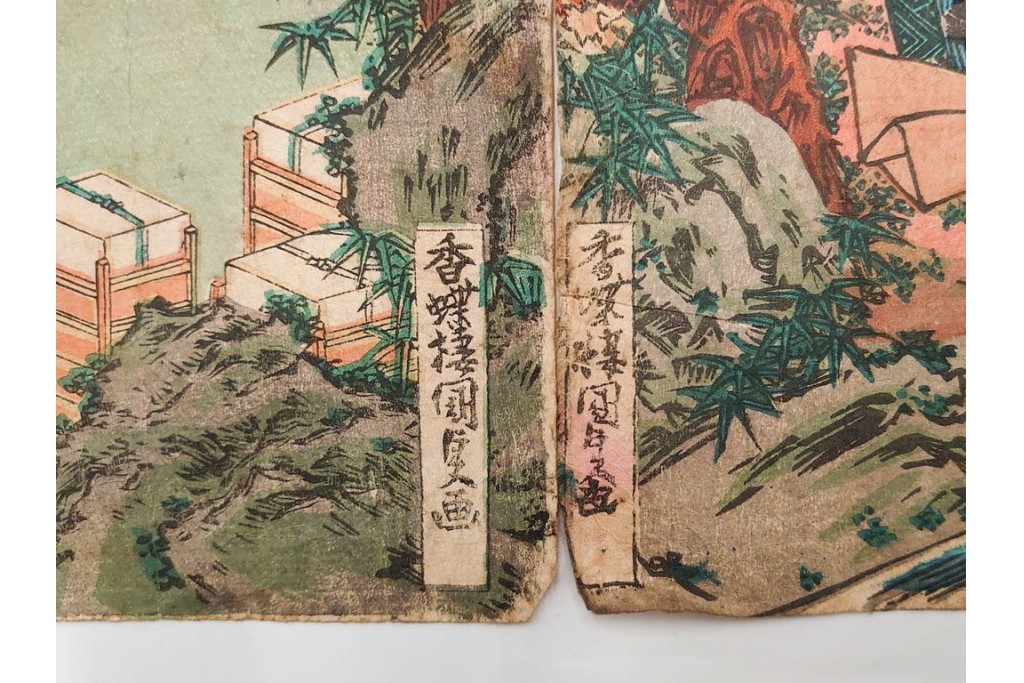 香蝶楼国貞画
香蝶楼国貞画